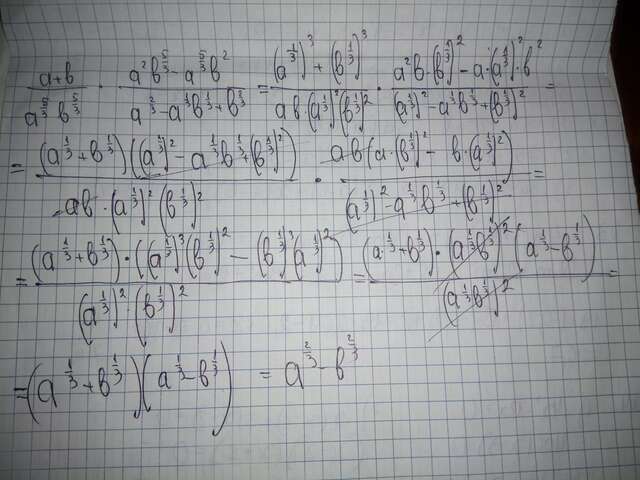 (a+b)/(a^(5/3) b^(5/3)) · (a²b^(5/3) - a^(5/3)b²)/(a^(2/3) - a^(1/3)b^(1/3) + b^(2/3)) = ((a^(1/3))³ + (b^(1/3))³)/(ab·(a^(1/3))²(b^(1/3))²) · (a²b·(b^(1/3))² - a·(a^(1/3))²·b²)/((a^(1/3))² - a^(1/3)b^(1/3) + (b^(1/3))²) =
= ((a^(1/3) + b^(1/3))((a^(1/3))² - a^(1/3)b^(1/3) + (b^(1/3))²))/(ab·(a^(1/3))²(b^(1/3))²) · (ab(a·(b^(1/3))² - b·(a^(1/3))²))/((a^(1/3))² - a^(1/3)b^(1/3) + (b^(1/3))²) =
= ((a^(1/3) + b^(1/3))·((a^(1/3))³(b^(1/3))² - (b^(1/3))³(a^(1/3))²))/((a^(1/3))²·(b^(1/3))²) = ((a^(1/3) + b^(1/3))·(a^(1/3)b^(1/3))²(a^(1/3) - b^(1/3)))/((a^(1/3)b^(1/3))²) =
= (a^(1/3) + b^(1/3))(a^(1/3) - b^(1/3)) = a^(2/3) - b^(2/3)